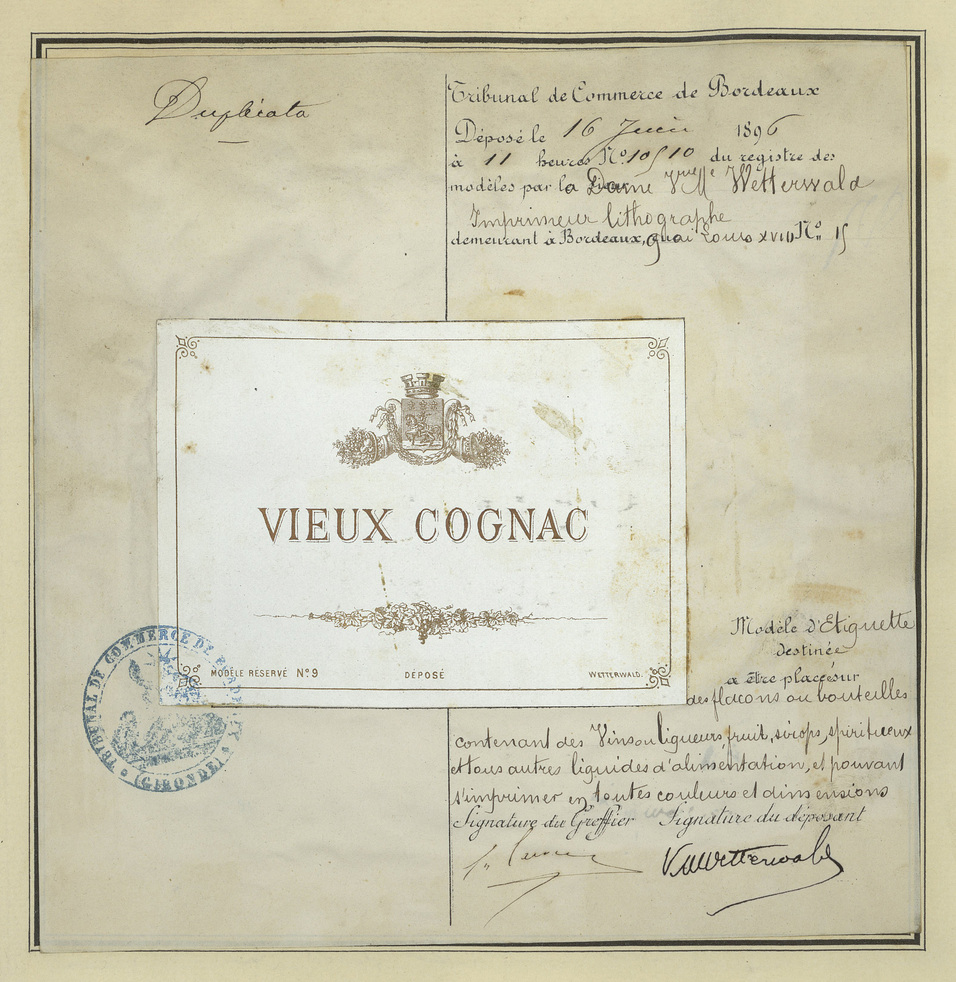 Duplicata
Tribunal de Commerce de Bordeaux
Déposé le 16 Juin 1896
à 11 heures N° 10510 du registre des
modèles par la Dame Vve M Wetterwald
Imprimeur lithographe
demeurant à Bordeaux, quai Louis XVIII N° 15
VIEUX COGNAC
MODÈLE RÉSERVÉ N° 9 DÉPOSÉ WETTERWALD.
Modèle d'Etiquette
destinée
a être placée sur
des flacons ou bouteilles
contenant des Vins ou liqueurs, fruit, sirops, spiritueux
et tous autres liquides d'alimentation, et pouvant
s'imprimer en toutes couleurs et dimensions
Signature du Greffier Signature du déposant
Wetterwald
TRIBUNAL DE COMMERCE DE BORDEAUX
(GIRONDE)